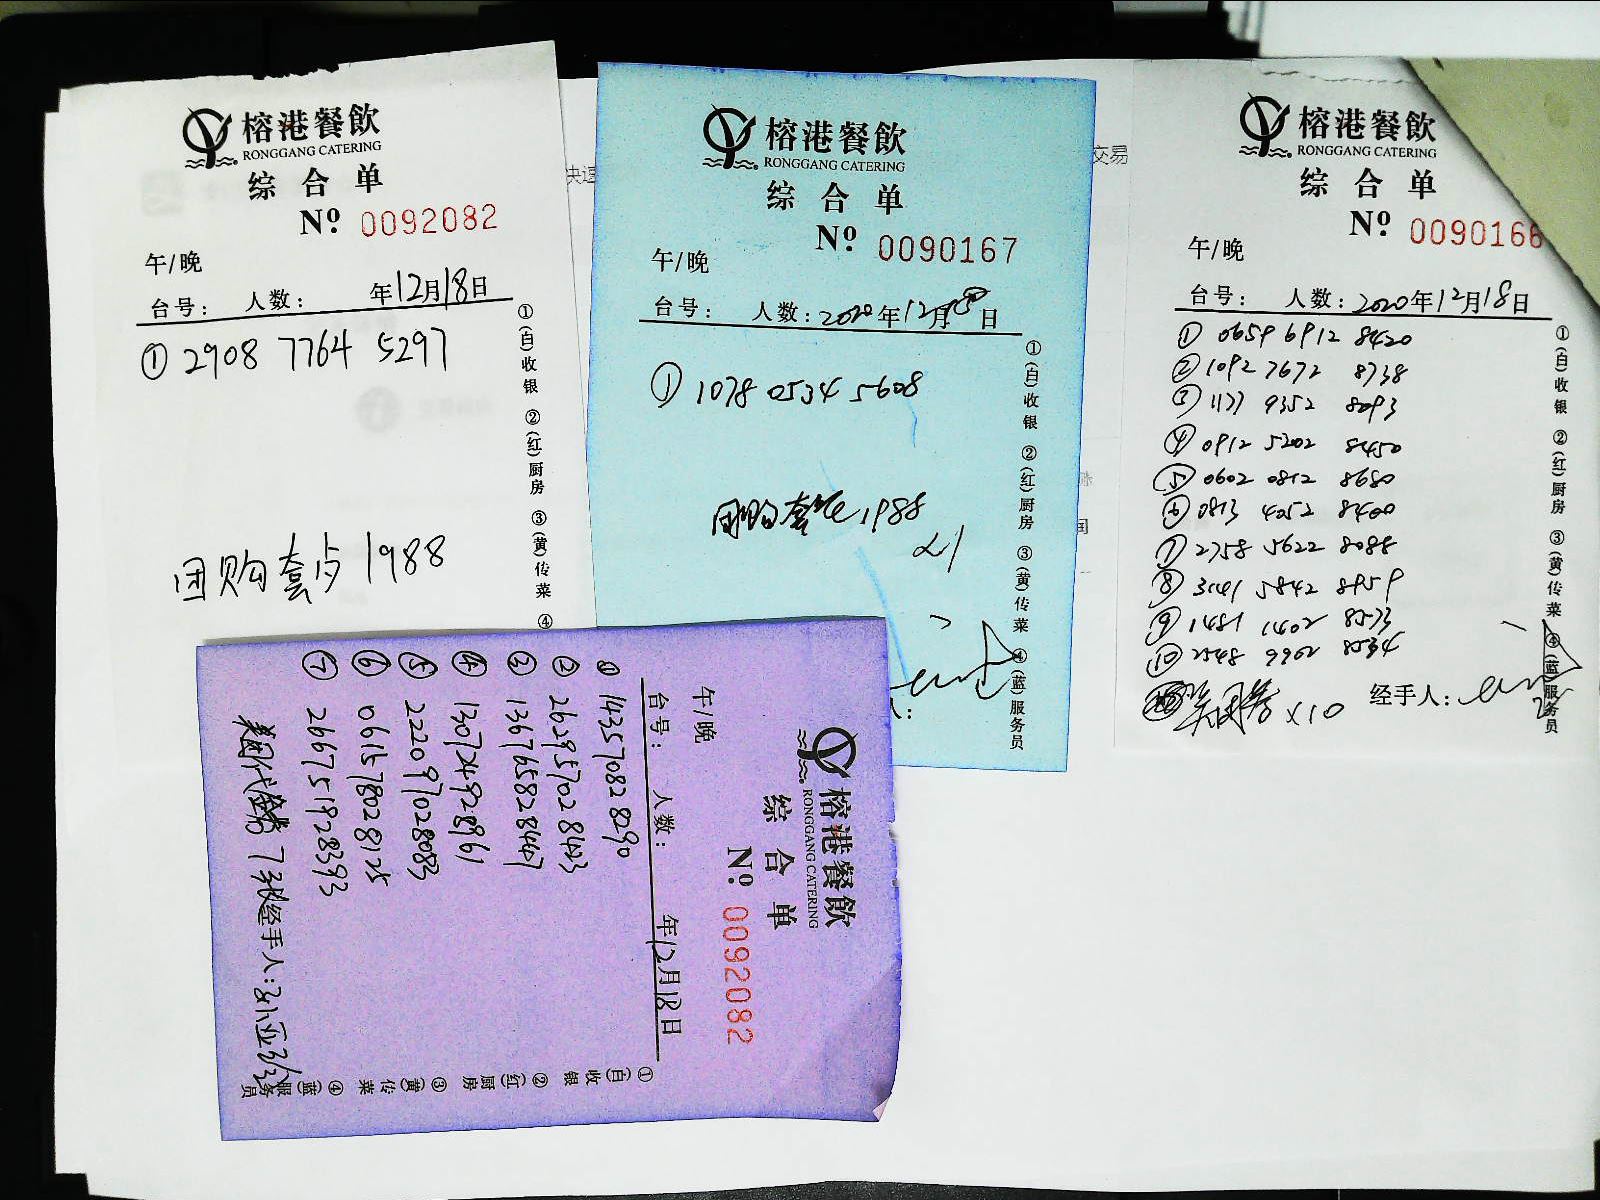 榕港餐飲
RONGGANG CATERING
综合单
Nº 0092082
午/晚
台号： 人数： 年12月18日
① 2908 7764 5297
团购套占 1988
①(白)收银 ②(红)厨房 ③(黄)传菜 ④
快速
榕港餐飲
RONGGANG CATERING
综合单
Nº 0090167
午/晚
台号： 人数：2020年12月18日
① 1078 0534 5608
团购套 1988
x1
①(白)收银 ②(红)厨房 ③(黄)传菜 ④(蓝)服务员
交易
榕港餐飲
RONGGANG CATERING
综合单
Nº 0090166
午/晚
台号： 人数：2020年12月18日
① 0659 6912 8420
② 1092 7672 8738
③ 1177 9352 8093
④ 0912 5202 8450
⑤ 0602 0812 8680
⑥ 0813 4052 8400
⑦ 2758 5622 8088
⑧ 3141 5842 8959
⑨ 1481 1402 8533
⑩ 2548 9962 8534
美团券 x10
经手人：
①(白)收银 ②(红)厨房 ③(黄)传菜 ④(蓝)服务员
榕港餐飲
RONGGANG CATERING
综合单
Nº 0092082
午/晚
台号： 人数： 年12月18日
① 143570828290
② 262957028443
③ 136765828447
④ 130724928961
⑤ 222097028083
⑥ 061578028125
⑦ 266751928393
美团代金券 7张
经手人：孙亚玲
①(白)收银 ②(红)厨房 ③(黄)传菜 ④(蓝)服务员